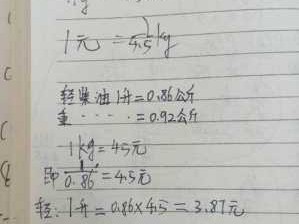 1元 = 1/4.5 kg
轻柴油1升=0.86公斤
重 · · · · =0.92公斤
1kg=4.5元
即 1/0.86 =4.5元
轻: 1升=0.86×4.5=3.87元